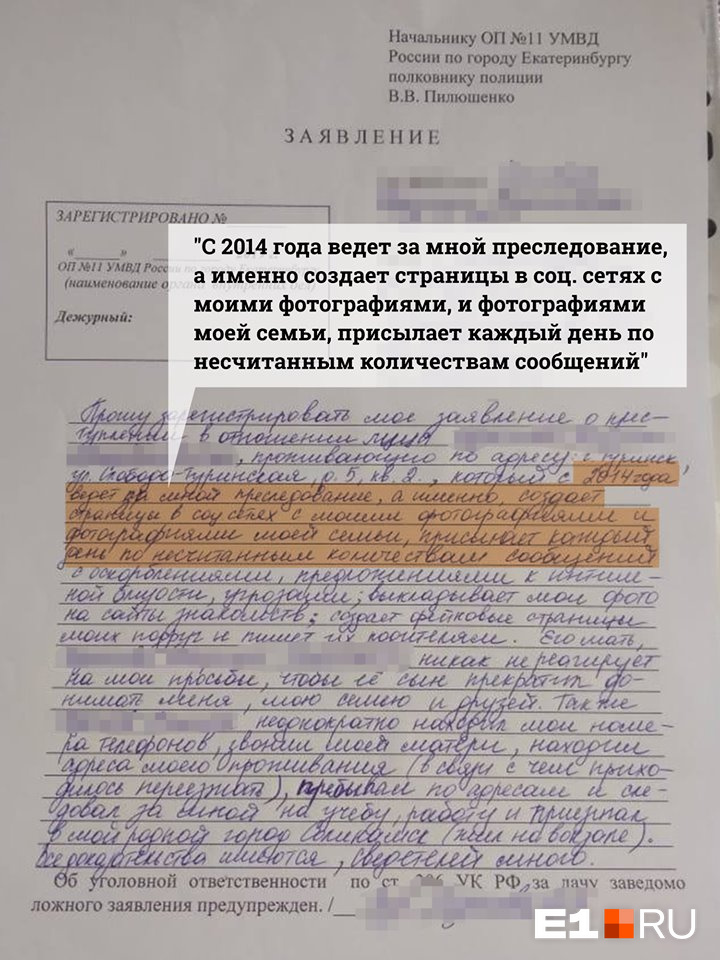 Начальнику ОП №11 УМВД
России по городу Екатеринбургу
полковнику полиции
В.В. Пилюшенко
ЗАЯВЛЕНИЕ
ЗАРЕГИСТРИРОВАНО №
«      »
ОП №11 УМВД России по городу Екатеринбургу
(наименование органа внутренних дел)
Дежурный:
"С 2014 года ведет за мной преследование,
а именно создает страницы в соц. сетях с
моими фотографиями, и фотографиями
моей семьи, присылает каждый день по
несчитанным количествам сообщений"
Прошу зарегистрировать мое заявление о прес-
туплении в отношении лица
, проживающую по адресу: г. Туринск,
ул. Слободо-Туринская, д. 5, кв. 2., который с 2014 года
ведет за мной преследование, а именно, создает
страницы в соц сетях с моими фотографиями и
фотографиями моей семьи, присылает каждый
день по несчитанным количествам сообщений
с оскорблениями, предложениями к интим-
ной близости, угрозами; выкладывает мои фото
на сайты знакомств; создает фейковые страницы
моих подруг и пишет их родителям. Его мать,
никак не реагирует
на мои просьбы, чтобы её сын прекратил до-
нимать меня, мою семью и друзей. Также
, неоднократно находил мои номе-
ра телефонов, звонил моей матери, находил
адреса моего проживания (в связи с чем прихо-
дилось переезжать), пребывал по адресам и сле-
довал за мной на учебу, работу и приезжал
в мой родной город Соликамск (жил на вокзале).
Все доказательства имеются, свидетелей много.
Об уголовной ответственности по ст. 306 УК РФ за дачу заведомо
ложного заявления предупрежден. /
E1.RU